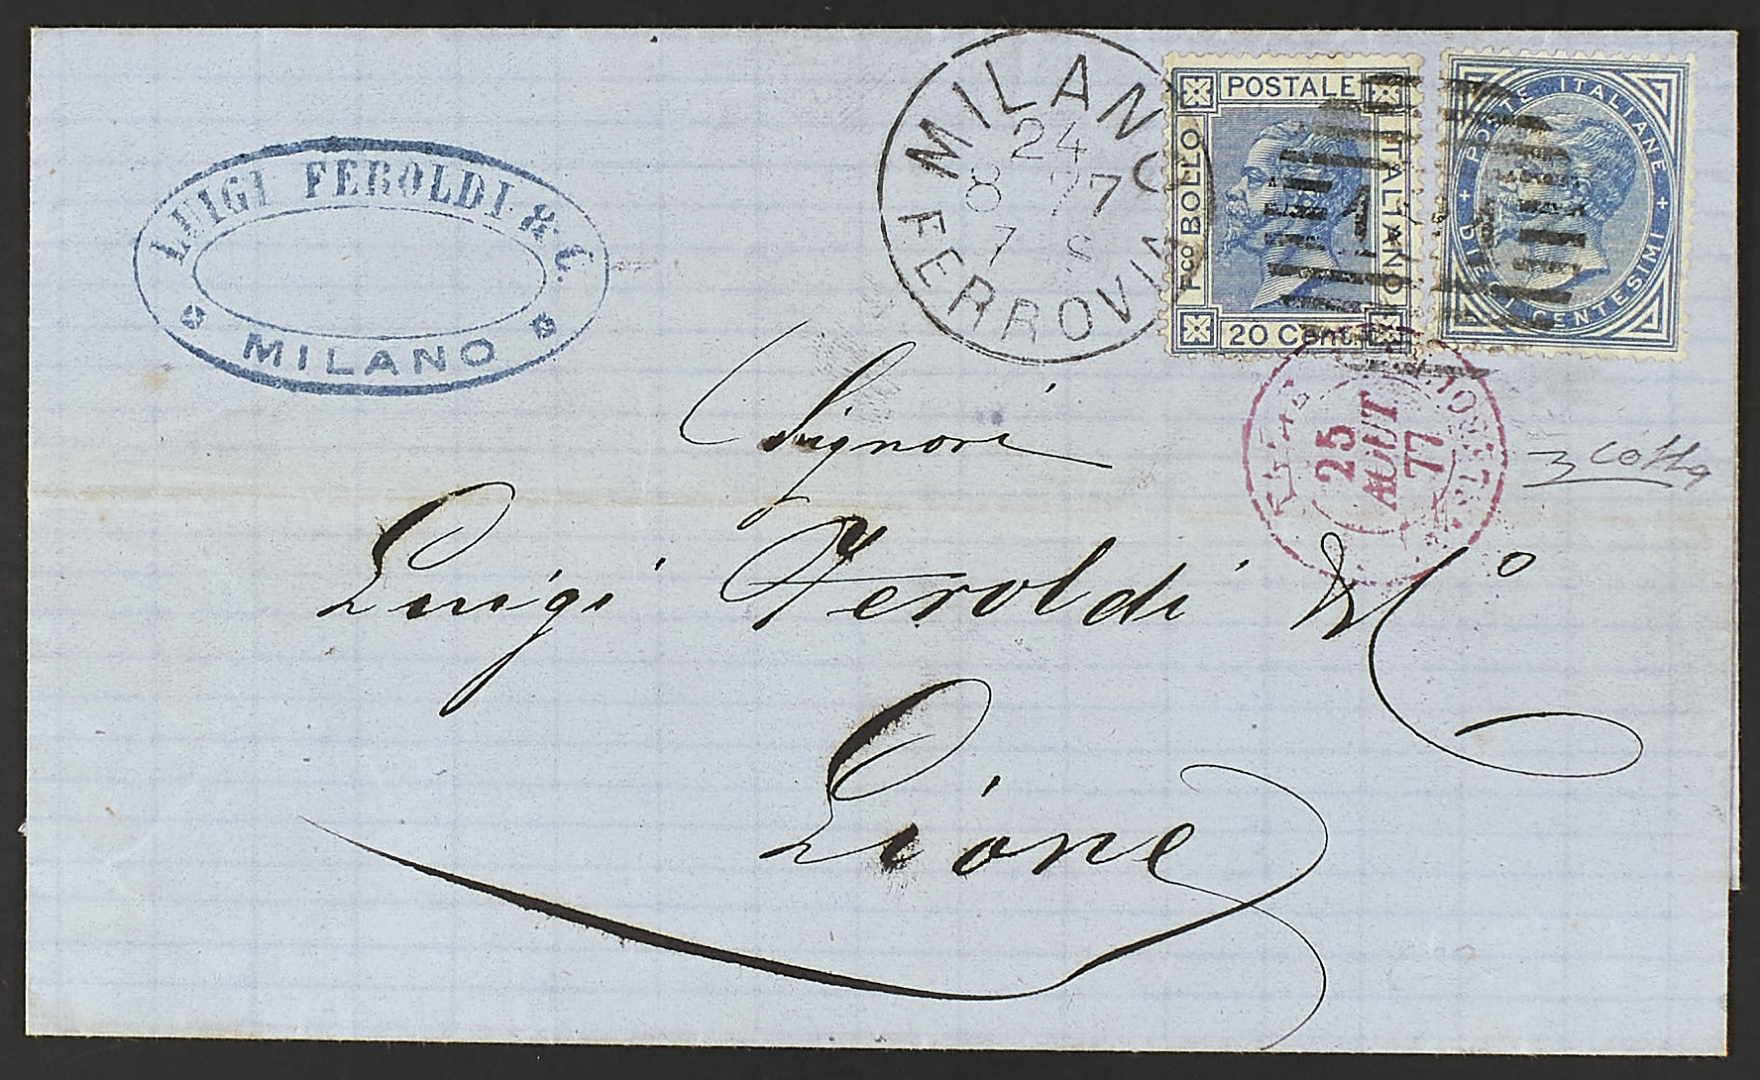 LUIGI FEROLDI & C.
MILANO
MILANO
24
8 77
7 S
FERROVIA
POSTALE
Fco BOLLO
ITALIANO
20 Cent
POSTE ITALIANE
DIECI CENTESIMI
25
AOUT
77
Signori
Luigi Feroldi & Co
Lione